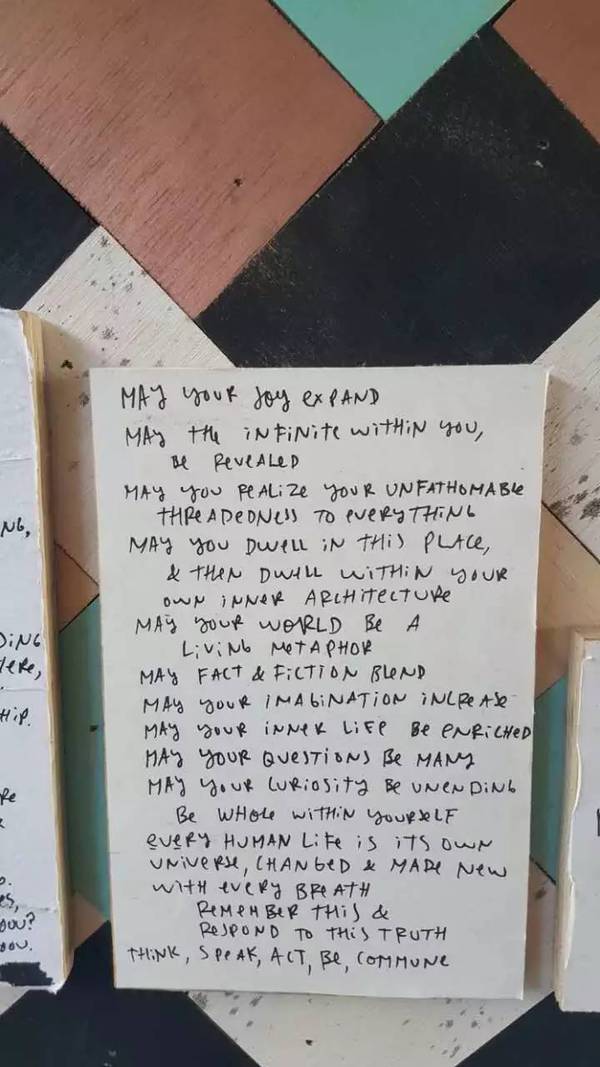 MAY YOUR JOY EXPAND
MAY THE INFINITE WITHIN YOU,
BE REVEALED
MAY YOU REALIZE YOUR UNFATHOMABLE
THREADEDNESS TO EVERYTHING
MAY YOU DWELL IN THIS PLACE,
& THEN DWELL WITHIN YOUR
OWN INNER ARCHITECTURE
MAY YOUR WORLD BE A
LIVING METAPHOR
MAY FACT & FICTION BLEND
MAY YOUR IMAGINATION INCREASE
MAY YOUR INNER LIFE BE ENRICHED
MAY YOUR QUESTIONS BE MANY
MAY YOUR CURIOSITY BE UNENDING
BE WHOLE WITHIN YOURSELF
EVERY HUMAN LIFE IS ITS OWN
UNIVERSE, CHANGED & MADE NEW
WITH EVERY BREATH
REMEMBER THIS &
RESPOND TO THIS TRUTH
THINK, SPEAK, ACT, BE, COMMUNE